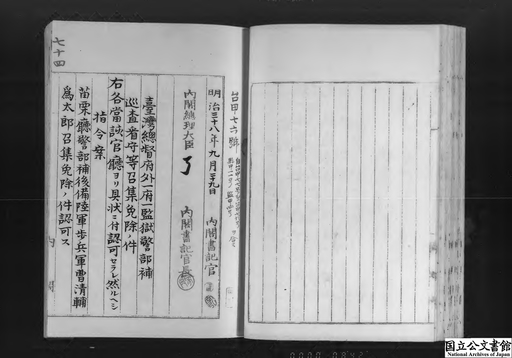 七十四
台甲七六號
明治三十八年九月廿九日
內閣書記官
內閣總理大臣
內閣書記官長
臺灣總督府外一府一監獄警部補
巡査看守等召集免除ノ件
右各當該官廳ヨリ具狀ニ付認可セラレ然ルヘシ
指令案
苗栗廳警部補後備陸軍步兵軍曹清輔
爲太郎召集免除ノ件認可ス
內閣
国立公文書館
National Archives of Japan